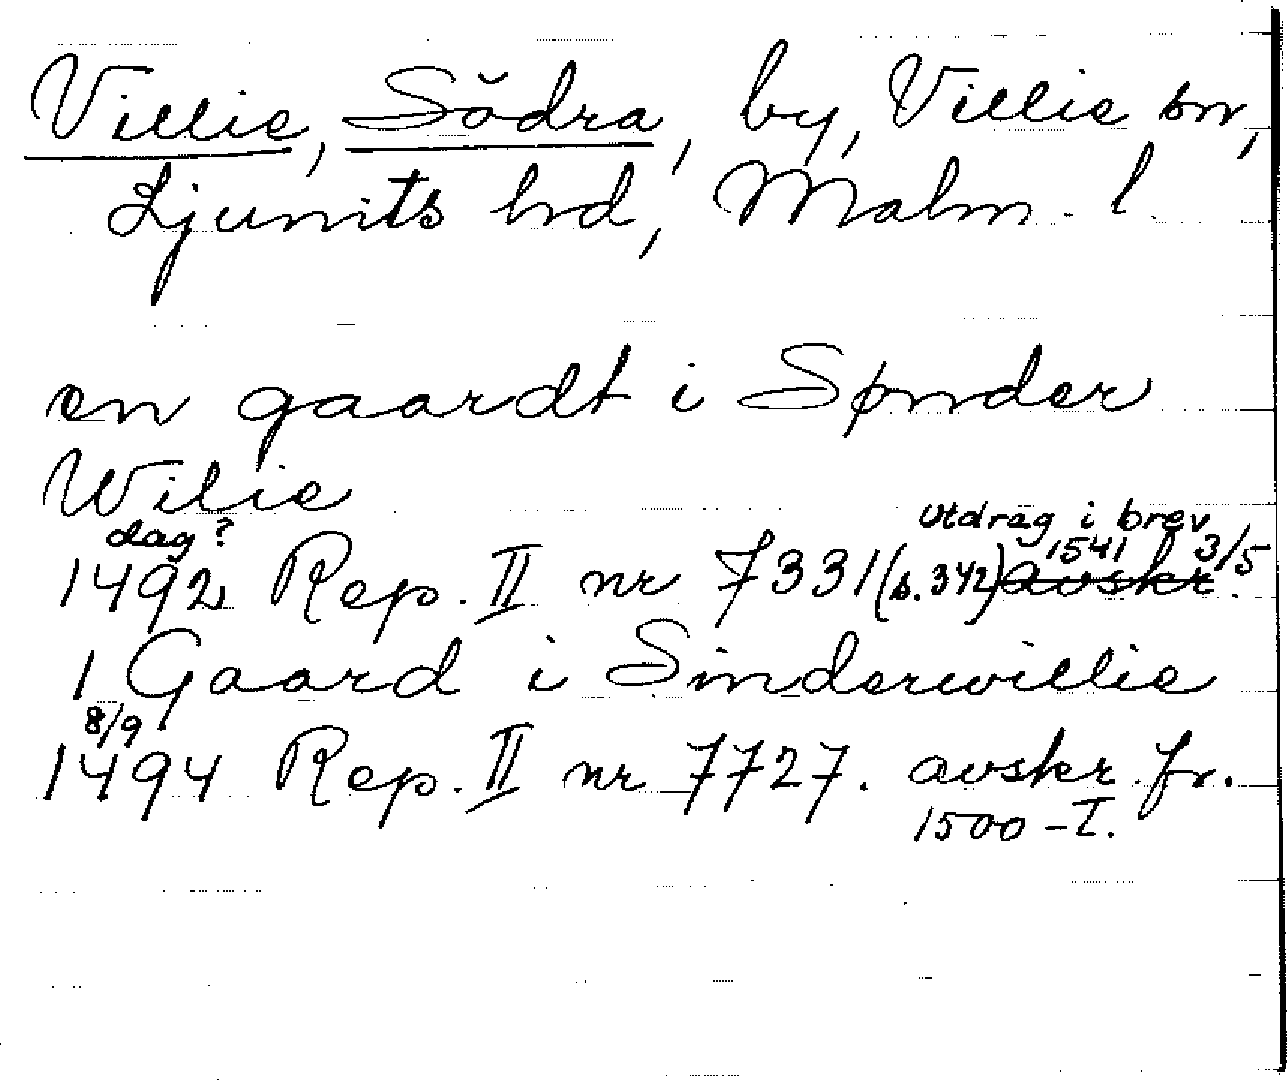 Villie, Södra, by, Villie sn,
Ljunits hd, Malm. l
en gaardt i Spnder
Wilie
dag? utdrag i brev
1492 Rep. II nr 7331 (s. 342) avskr. 1541 3/5
1 Gaard i Sinderwillie
8/9
1494 Rep. II nr 7727. avskr. fr.
1500-T.